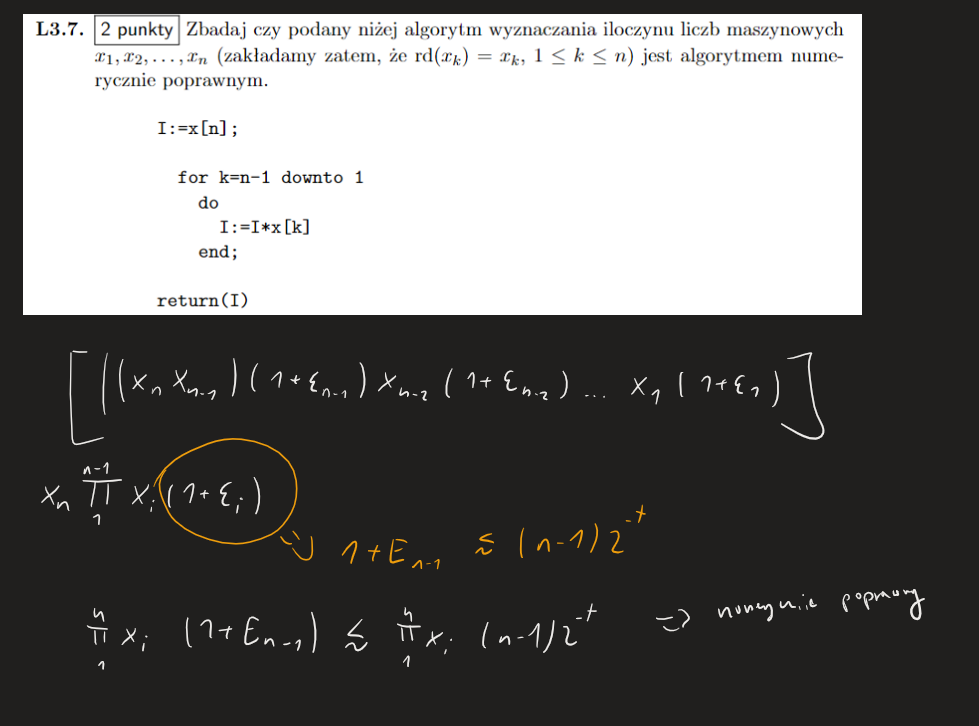 L3.7. 2 punkty Zbadaj czy podany niżej algorytm wyznaczania iloczynu liczb maszynowych
x₁, x₂, . . . , xₙ (zakładamy zatem, że rd(xₖ) = xₖ, 1 ≤ k ≤ n) jest algorytmem nume-
rycznie poprawnym.
I:=x[n];
for k=n-1 downto 1
do
I:=I*x[k]
end;
return(I)
[((xₙ xₙ₋₁)(1+εₙ₋₁) xₙ₋₂ (1+εₙ₋₂) ... x₁ (1+ε₁)]
xₙ ∏₁ⁿ⁻¹ xᵢ (1+εᵢ)
1+Eₙ₋₁ ≲ (n-1) 2⁻ᵗ
∏₁ⁿ xᵢ (1+Eₙ₋₁) ≲ ∏₁ⁿ xᵢ (n-1) 2⁻ᵗ => numerycznie poprawny